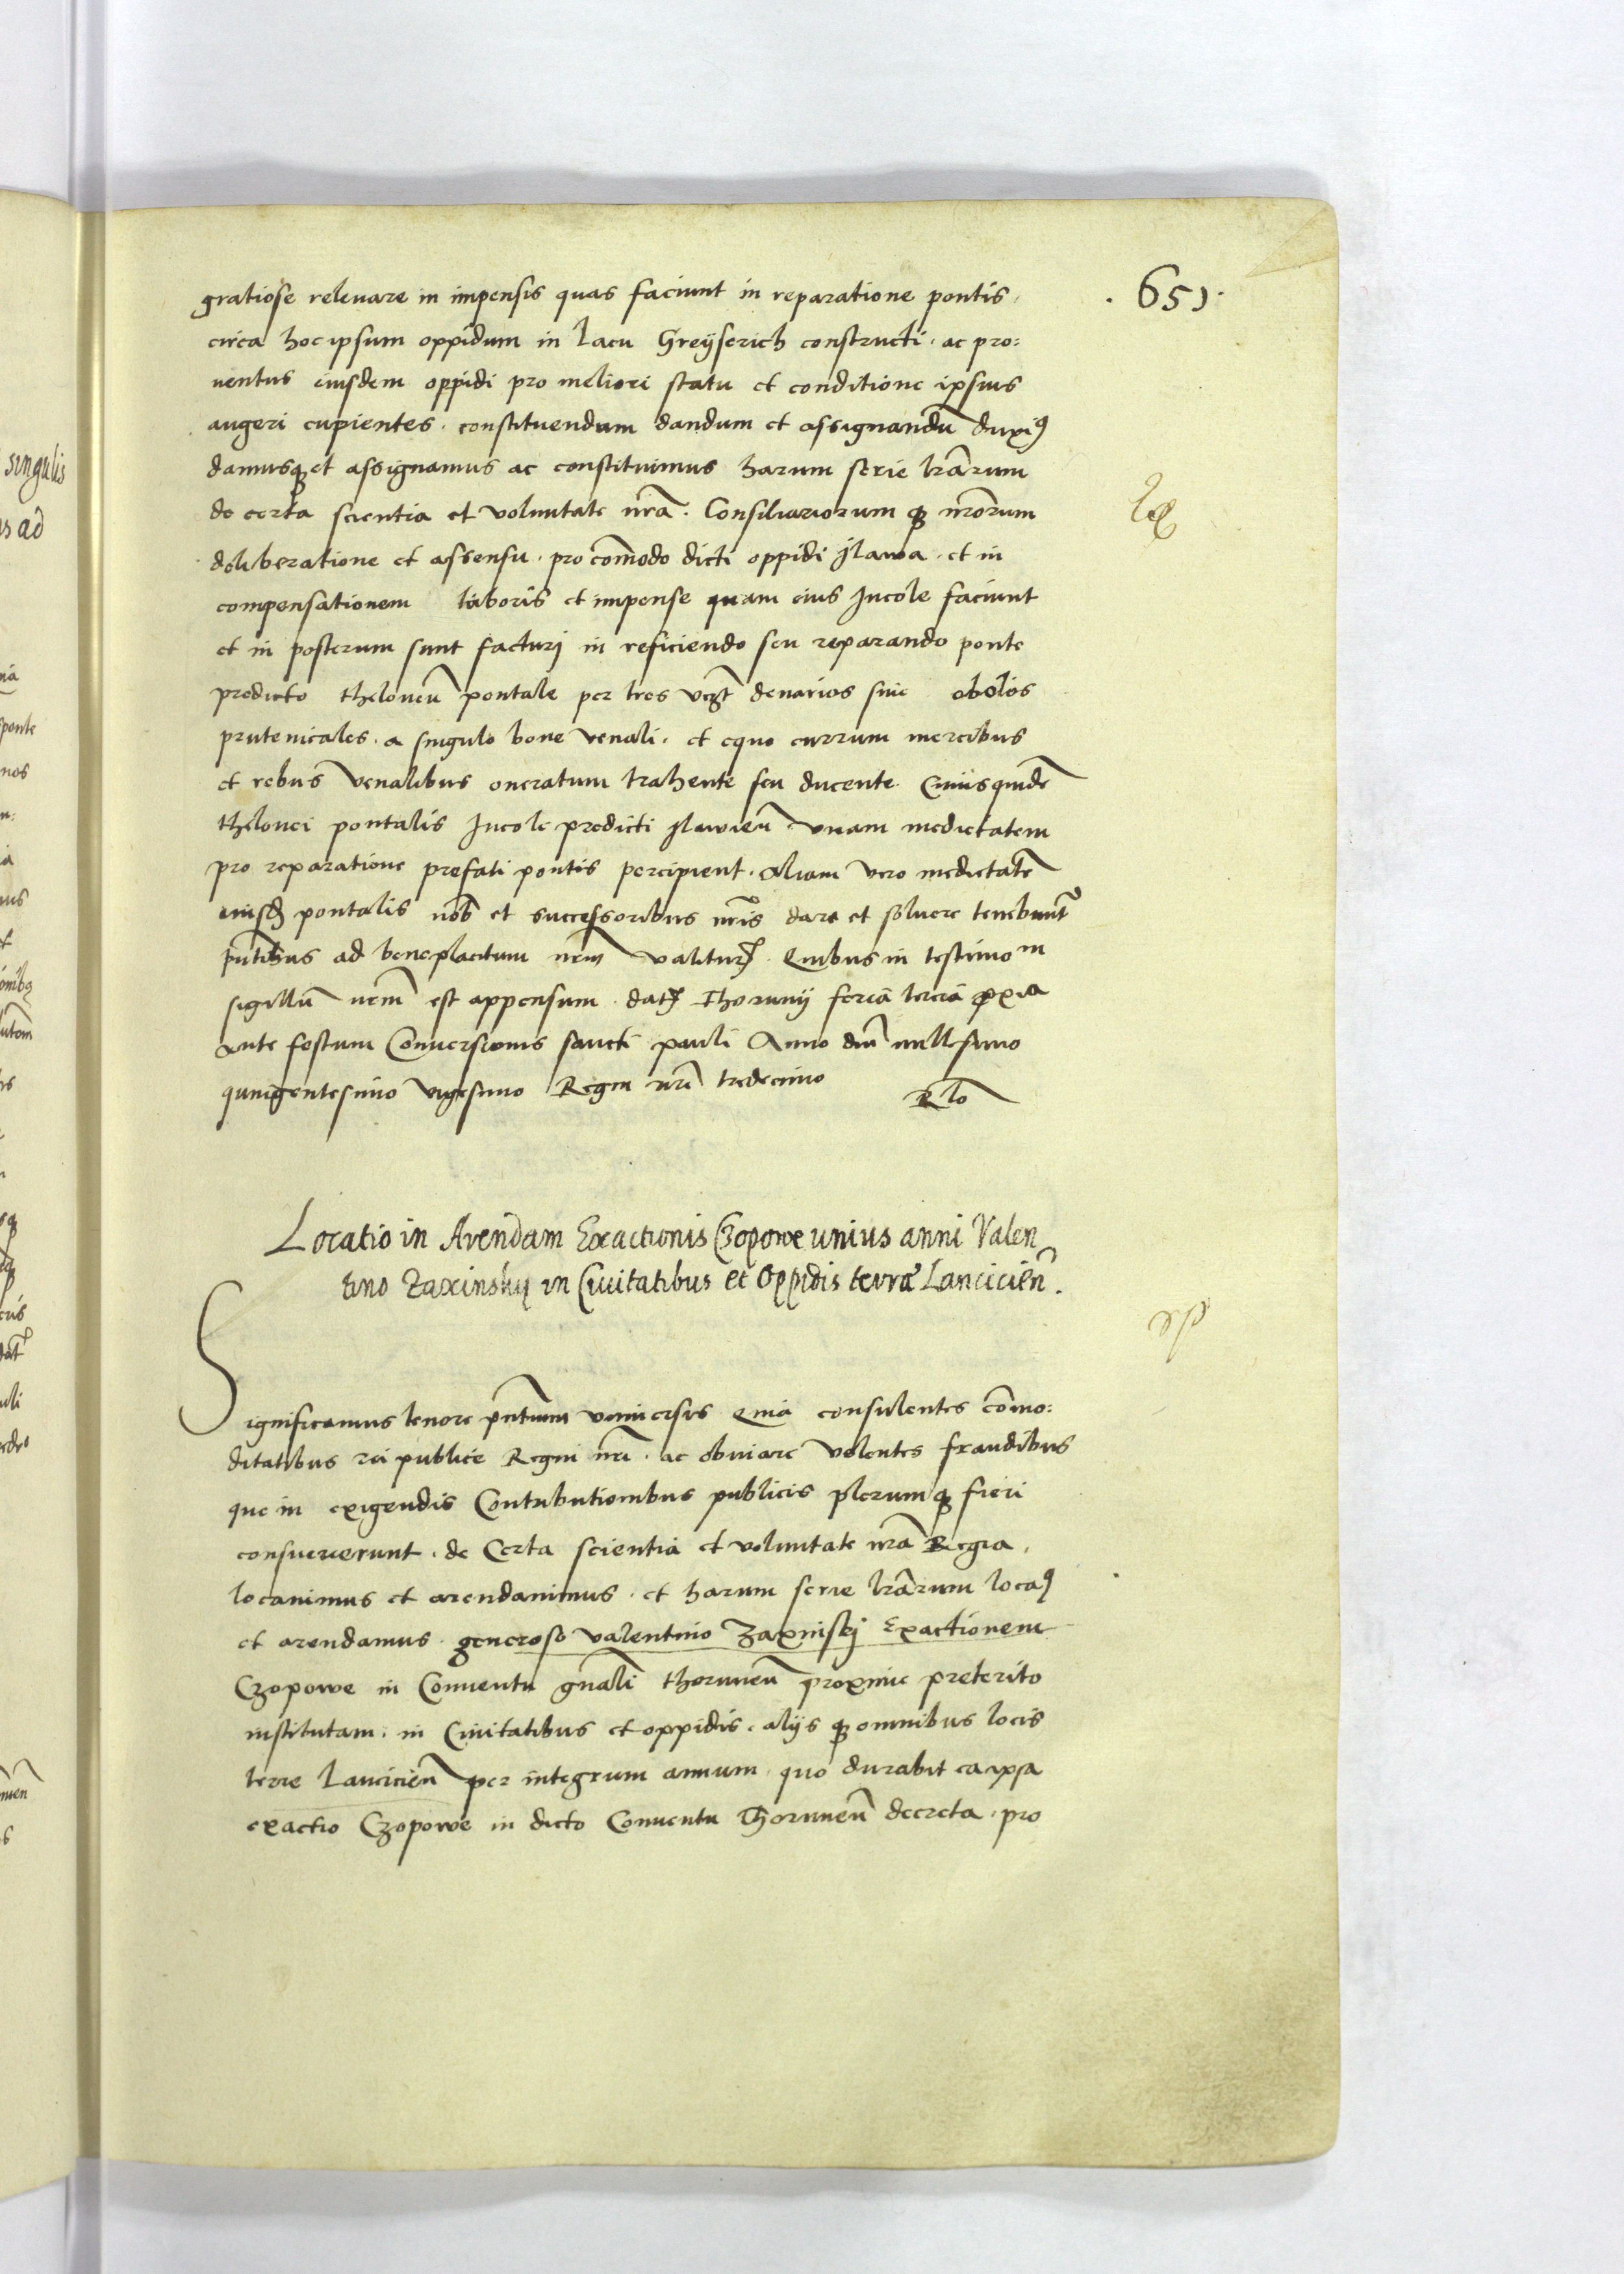 . 651.
gratiose releuare in impensis quas faciunt in reparatione pontis,
circa hoc ipsum oppidum in lacu Greyserich constructi. ac pro:
uentus eiusdem oppidi pro meliori statu et conditione ipsius
augeri cupientes. constituendum dandum et assignandū duxiꝰ
damusqꝫ et assignamus ac constituimus harum serie lrārum
de certa scientia et voluntate nrā. Consiliariorum qꝫ nrōrum
deliberatione et assensu. pro cōmodo dicti oppidi Jlawa. et in
compensationem laboris et impense quam eius Incole faciunt
et in posterum sunt facturj in reficiendo seu reparando ponte
predicto theloneū pontale per tres denarios siue obolos
prutenicales. a singulo boue venali. et equo currum mercibus
et rebus venalibus oneratum trahente seu ducente. Cuiusquidē
thelonei pontalis Incole predicti Jlawień. vnam medietatem
pro reparatione prefati pontis percipient. aliam vero medietatē
eiusd pontalis nob et successoribus nrīs dare et soluere tenebuntr
pntibus ad beneplacitum nrm valitur. Quibus in testimom
sigillū nrm est appensum. dat Thorunij feria tercia pxia
ante festum Conuersionis sancti pauli Anno dni millesimo
quingentesimo vigesimo Regni nri tredecimo
Rlo
Locatio in Arendam Exactionis Czopowe unius anni Valen
tino Zaxinsky in Ciuitatibus et Oppidis terræ Lancicień.
Significamus tenore pntium vniuersis Quia consulentes cōmo:
ditatibus rei publice Regni nri. ac obuiare volentes fraudibus
que in exigendis Contributionibus publicis plerumqꝫ fieri
consueuerunt. de Certa scientia et voluntate nrā Regia,
locauimus et arendauimus. et harum serie lrārum locaꝰ
et arendamus. generoso valentino Zaxinskj Exactionem
Czopowe in Conuentu gnāli thorunień proxime preterito
institutam. in Ciuitatibus et oppidis. alijs qꝫ omnibus locis
terre Lancicień per integrum annum. quo durabit ea ipsa
exactio Czopowe in dicto Conuentu Thorunień decreta. pro